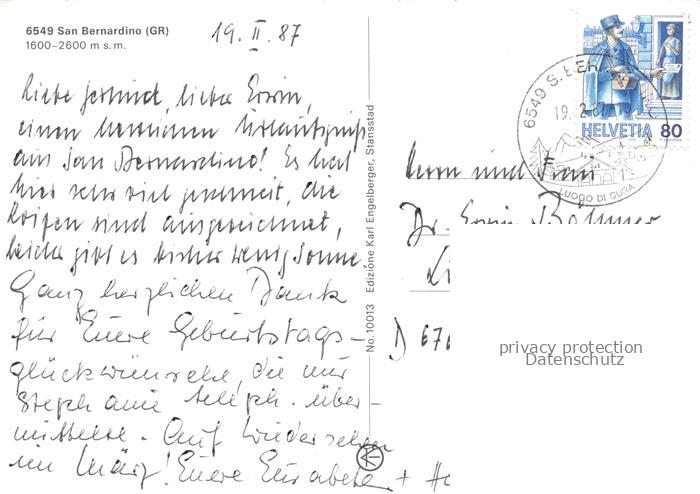 6549 San Bernardino (GR)
1600–2600 m s.m.
19. II. 87
Liebe Gerlind, lieber Erwin,
einen herzlichen Urlaubsgruß
aus San Bernardino! Es hat
hier sehr viel geschneit, die
Loipen sind ausgezeichnet,
leider gibt es bisher wenig Sonne.
Ganz herzlichen Dank
für Euere Geburtstags-
glückwünsche, die mir
Stephanie teleph. über-
mittelte. Auf Wiedersehen
im März! Euere Elisabeth + He
No. 10013 Edizione Karl Engelberger, Stansstad
6549 S. BER
19. 2. 87
LUOGO DI CURA
HELVETIA 80
Herrn und Frau
Dr. Erwin Böhmer
Li
D 670
privacy protection
Datenschutz